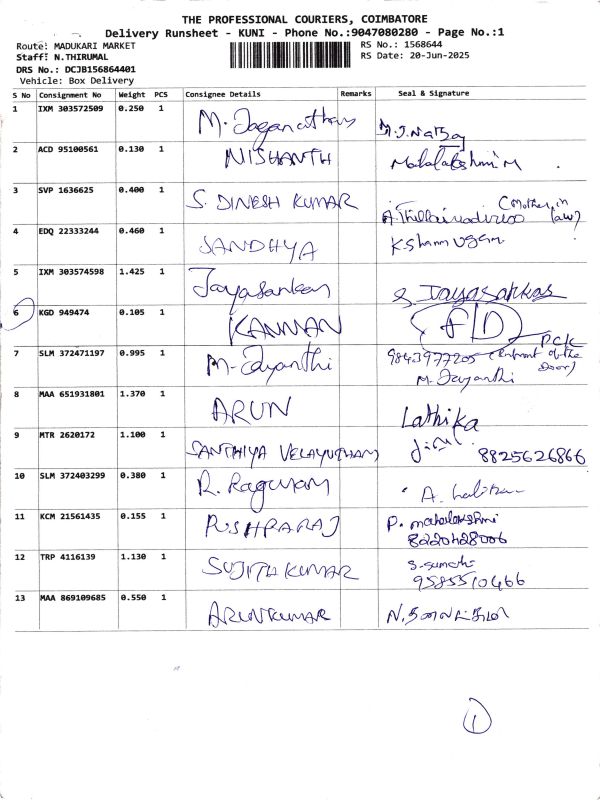 THE PROFESSIONAL COURIERS, COIMBATORE
Delivery Runsheet - KUNI - Phone No.:9047080280 - Page No.:1
Route: MADUKARI MARKET
RS No.: 1568644
Staff: N.THIRUMAL
RS Date: 20-Jun-2025
DRS No.: DCJB156864401
Vehicle: Box Delivery
S No Consignment No Weight PCS Consignee Details Remarks Seal & Signature
1 IXM 303572509 0.250 1 M. Jaganathan
2 ACD 95100561 0.130 1 NISHANTH Mahalakshmi M
3 SVP 1636625 0.400 1 S. DINESH KUMAR (Mother in law)
4 EDQ 22333244 0.460 1 SANDHYA K Shanmugam
5 IXM 303574598 1.425 1 Jayasankar S. Jayasankar
6 KGD 949474 0.105 1 KANNAN
7 SLM 372471197 0.995 1 M. Jayanthi 9843977205 (Infront of the Door)
M. Jayanthi
8 MAA 651931801 1.370 1 ARUN Lathika
9 MTR 2620172 1.100 1 SANTHIYA VELAYUTHAM 8825626866
10 SLM 372403299 0.380 1 R. Raguram
11 KCM 21561435 0.155 1 PUSHPARAJ P. mahalakshmi
8220428006
12 TRP 4116139 1.130 1 SUJITH KUMAR S. Sumathi
9585510466
13 MAA 869109685 0.550 1 ARUNKUMAR
1